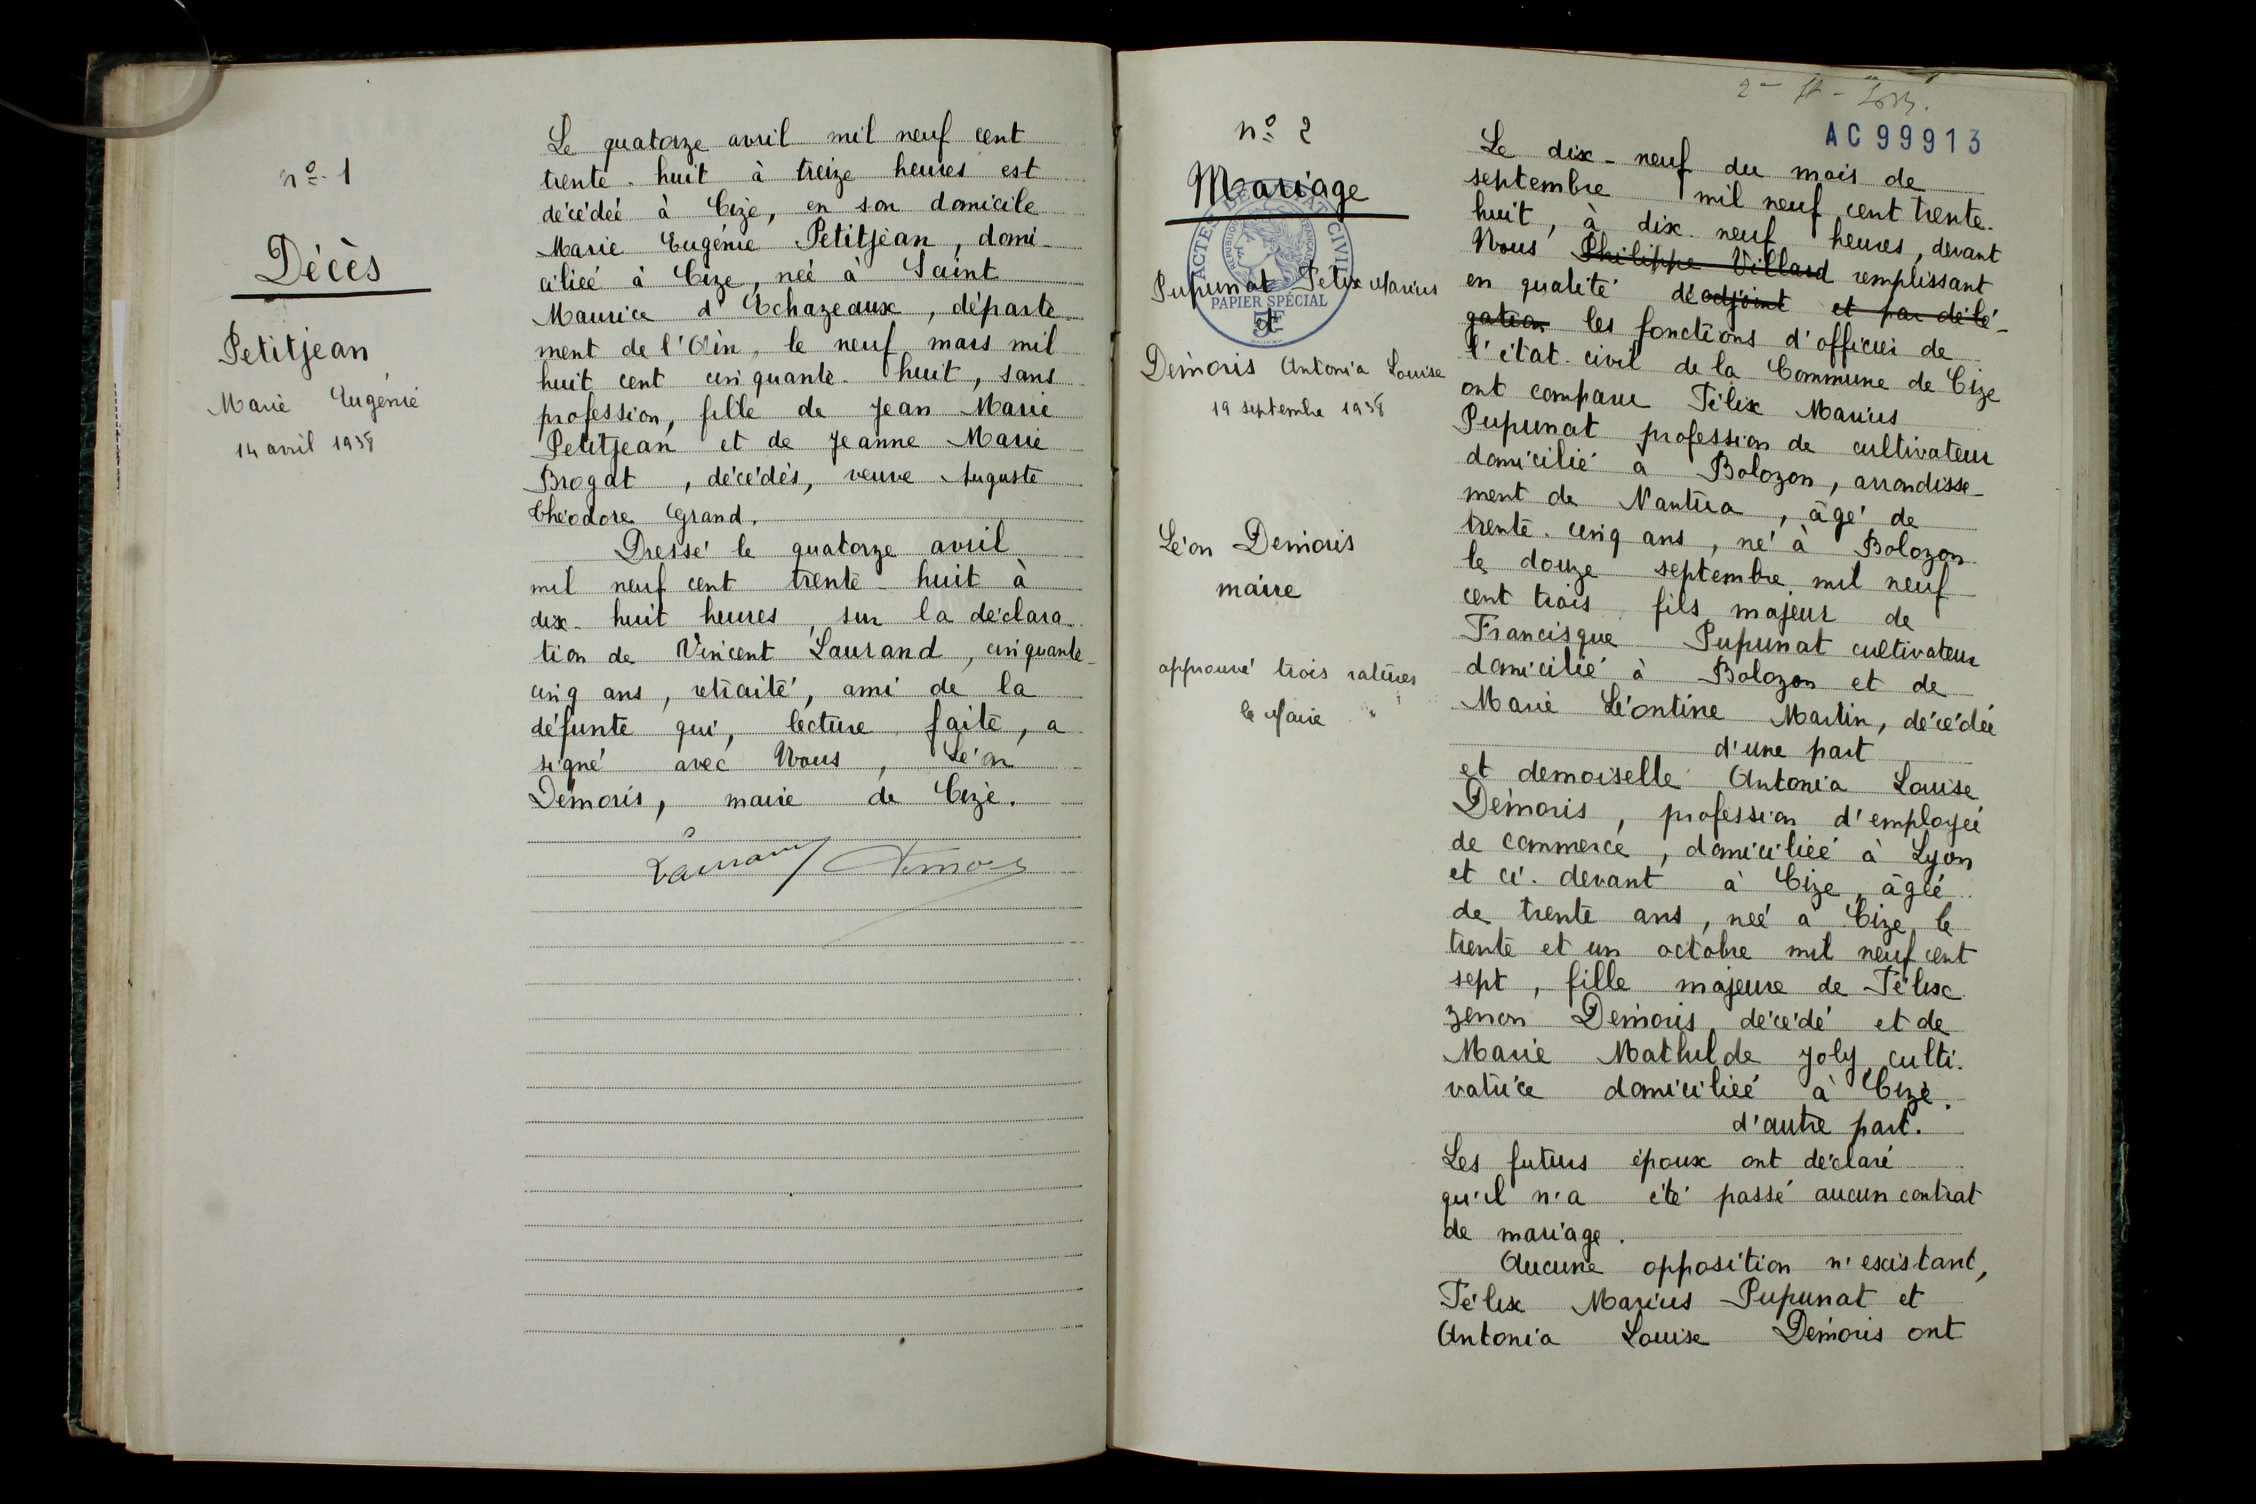 nº 1
Décès
Petitjean
Marie Eugénie
14 avril 1938
Le quatorze avril mil neuf cent
trente-huit à treize heures est
décédée à Cize, en son domicile
Marie Eugénie Petitjean, domi-
ciliée à Cize, née à Saint
Maurice d'Echazeaux, départe-
ment de l'Ain, le neuf mars mil
huit cent cinquante-huit, sans
profession, fille de Jean Marie
Petitjean et de Jeanne Marie
Brogat, décédés, veuve Auguste
Théodore Grand.
Dressé le quatorze avril
mil neuf cent trente-huit à
dix-huit heures, sur la déclara-
tion de Vincent Laurand, cinquante-
cinq ans, retraité, ami de la
défunte qui, lecture faite, a
signé avec Nous, Léon
Démoris, maire de Cize.
Laurand Démoris
AC 99913
nº 2
Mariage
ACTES DE L'ETAT CIVIL
REPUBLIQUE FRANÇAISE
PAPIER SPÉCIAL
Pupunat Félix Marius
et
Démoris Antonia Louise
19 septembre 1938
Léon Démoris
maire
approuvé trois ratures
le Maire
Le dix-neuf du mois de
septembre mil neuf cent trente-
huit, à dix-neuf heures, devant
Nous Philippe Villard remplissant
en qualité d'adjoint et par délé-
gation les fonctions d'officier de
l'état-civil de la Commune de Cize
ont comparu Félix Marius
Pupunat profession de cultivateur
domicilié à Bolozon, arrondisse-
ment de Nantua, âgé de
trente-cinq ans, né à Bolozon
le douze septembre mil neuf
cent trois fils majeur de
Francisque Pupunat cultivateur
domicilié à Bolozon et de
Marie Léontine Martin, décédée
d'une part
et demoiselle Antonia Louise
Démoris, profession d'employée
de commerce, domiciliée à Lyon
et ci-devant à Cize, âgée
de trente ans, née à Cize le
trente et un octobre mil neuf cent
sept, fille majeure de Félix
Zenon Démoris, décédé et de
Marie Mathilde Joly culti-
vatrice domiciliée à Cize.
d'autre part.
Les futurs époux ont déclaré
qu'il n'a été passé aucun contrat
de mariage.
Aucune opposition n'existant,
Félix Marius Pupunat et
Antonia Louise Démoris ont